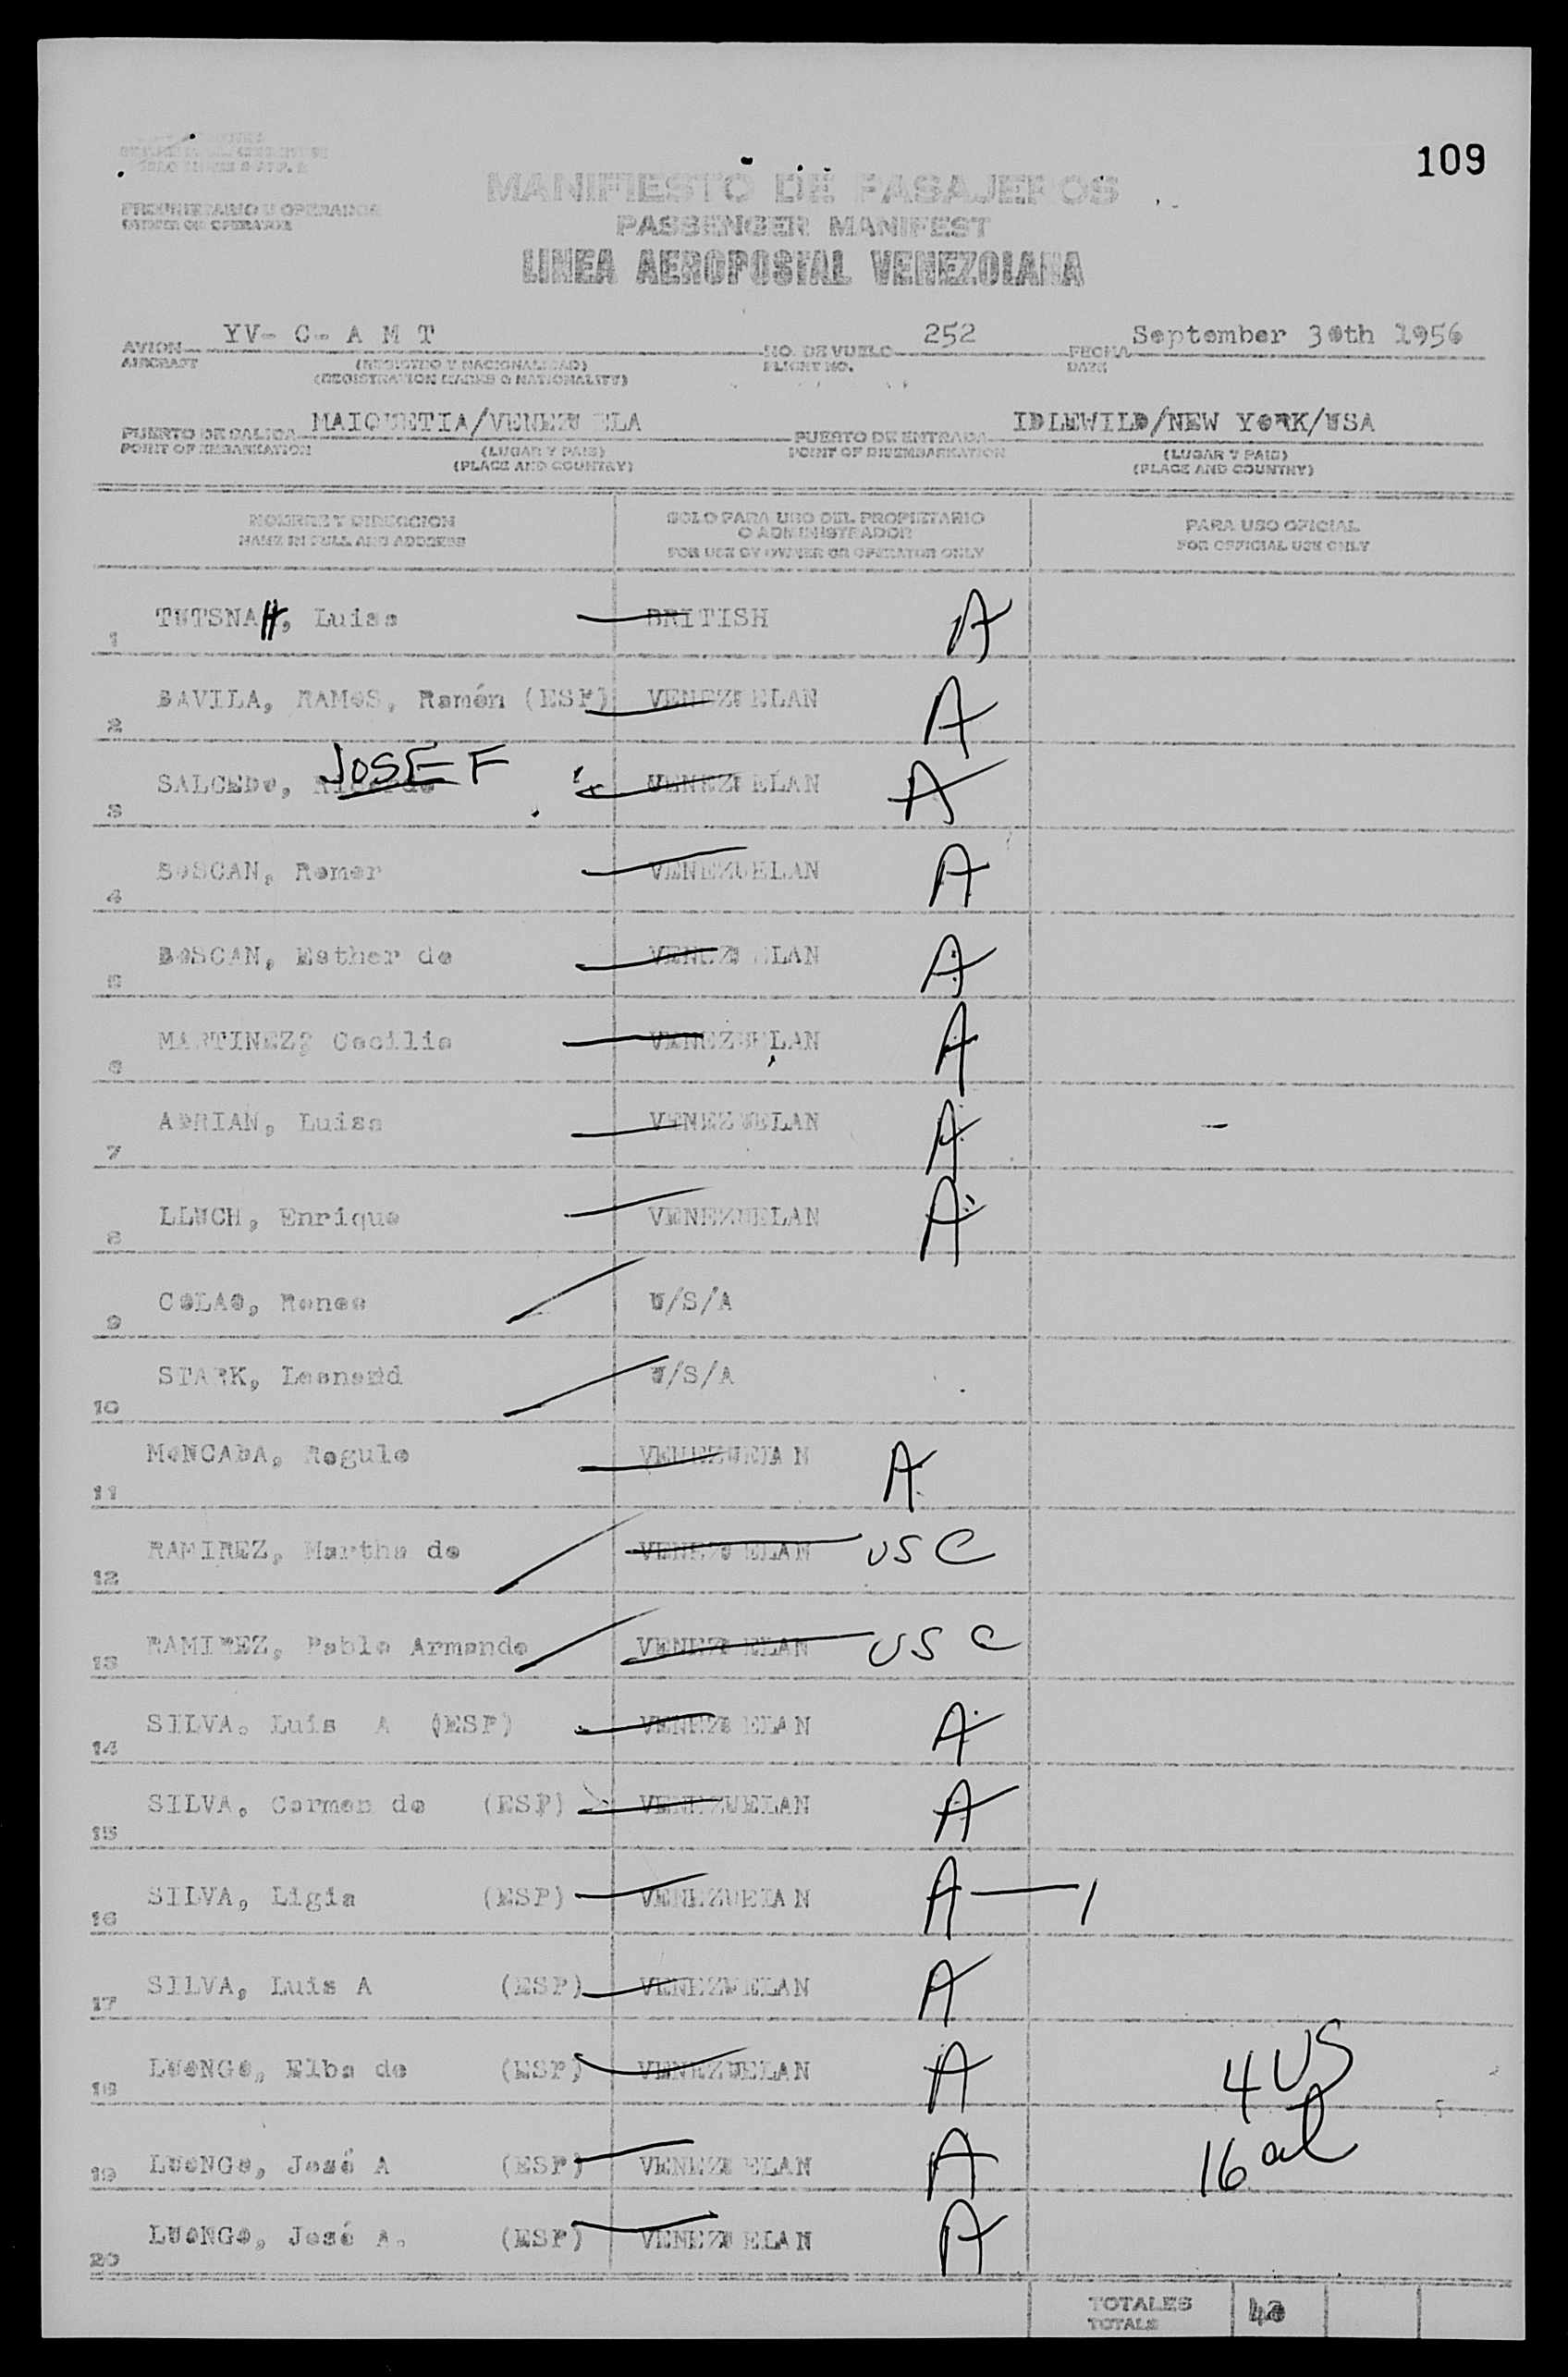 109
MANIFIESTO DE PASAJEROS
PROPIETARIO U OPERADOR
OWNER OR OPERATOR
PASSENGER MANIFEST
LINEA AEROPOSTAL VENEZOLANA
AVION YV- C- A M T NO. DE VUELO 252 FECHA September 30th 1956
AIRCRAFT (REGISTRO Y NACIONALIDAD) FLIGHT NO. DATE
(REGISTRATION MARKS & NATIONALITY)
PUERTO DE SALIDA MAIQUETIA/VENEZUELA PUERTO DE ENTRADA IDLEWILD/NEW YORK/USA
POINT OF EMBARKATION (LUGAR Y PAIS) POINT OF DISEMBARKATION (LUGAR Y PAIS)
(PLACE AND COUNTRY) (PLACE AND COUNTRY)
NOMBRE Y DIRECCION SOLO PARA USO DEL PROPIETARIO O ADMINISTRADOR PARA USO OFICIAL
NAME IN FULL AND ADDRESS FOR USE BY OWNER OR OPERATOR ONLY FOR OFFICIAL USE ONLY
1 TUTSNAH, Luisa BRITISH A
2 DAVILA, RAMOS, Ramón (ESP) VENEZUELAN A
JOSE F
3 SALCEDO, Ricardo VENEZUELAN A
4 BOSCAN, Romer VENEZUELAN A
5 BOSCAN, Esther de VENEZUELAN A
6 MARTINEZ, Cecilia VENEZUELAN A
7 ADRIAN, Luisa VENEZUELAN A
8 LLUCH, Enrique VENEZUELAN A
9 COLAO, Renee U/S/A
10 STARK, U/S/A
11 MONCADA, Regulo VENEZUELAN A
12 RAMIREZ, Martha de VENEZUELAN USC
13 RAMIREZ, Pablo Armando VENEZUELAN USC
14 SILVA. Luis A (ESP) VENEZUELAN A
15 SILVA. Carmen de (ESP) VENEZUELAN A
16 SILVA, Ligia (ESP) VENEZUELAN A — 1
17 SILVA, Luis A (ESP) VENEZUELAN A
18 LUONGO, Elba de (ESP) VENEZUELAN A 4 US
19 LUONGO, José A (ESP) VENEZUELAN A 16 al
20 LUONGO, José A. (ESP) VENEZUELAN A
TOTALES
TOTALS